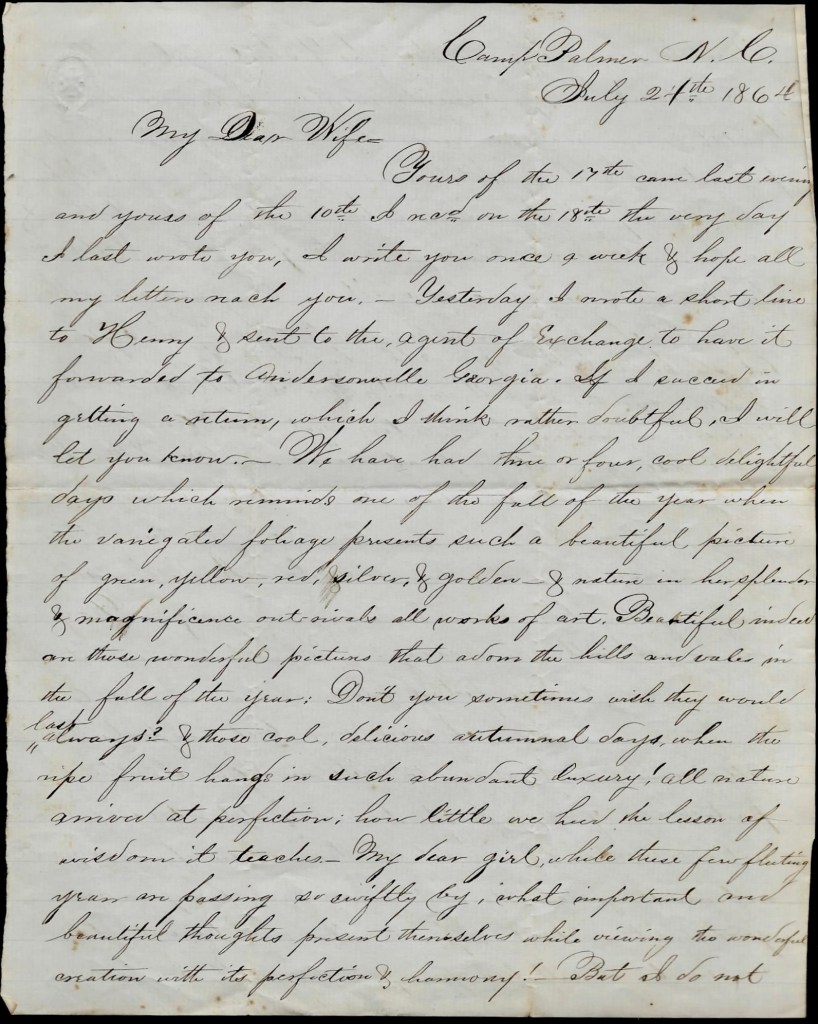 Camp Palmer N. C.
July 24th 1864
My Dear Wife=
Yours of the 17th came last evening
and yours of the 10th I recd on the 18th the very day
I last wrote you, I write you once a week & hope all
my letters reach you. – Yesterday I wrote a short line
to Henry & sent to the, agent of Exchange to have it
forwarded to Andersonville Georgia. If I succeed in
getting a return, which I think rather doubtful, I will
let you know. – We have had three or four, cool delightful
days which reminds one of the fall of the year when
the variegated foliage presents such a beautiful picture
of green, yellow, red, & silver, & golden – & nature in her splendor
& magnificence out-rivals all works of art. Beautiful indeed
are those wonderful pictures that adorn the hills and vales in
the fall of the year; Don't you sometimes wish they would
last
"always"? & those cool, delicious autumnal days, when the
ripe fruit hangs in such abundant luxury! all nature
arrived at perfection; how little we heed the lesson of
wisdom it teaches – My dear girl, while these few fleeting
years are passing so swiftly by, what important and
beautiful thoughts present themselves while viewing the wonderful
creation with its perfection & harmony! – But I do not